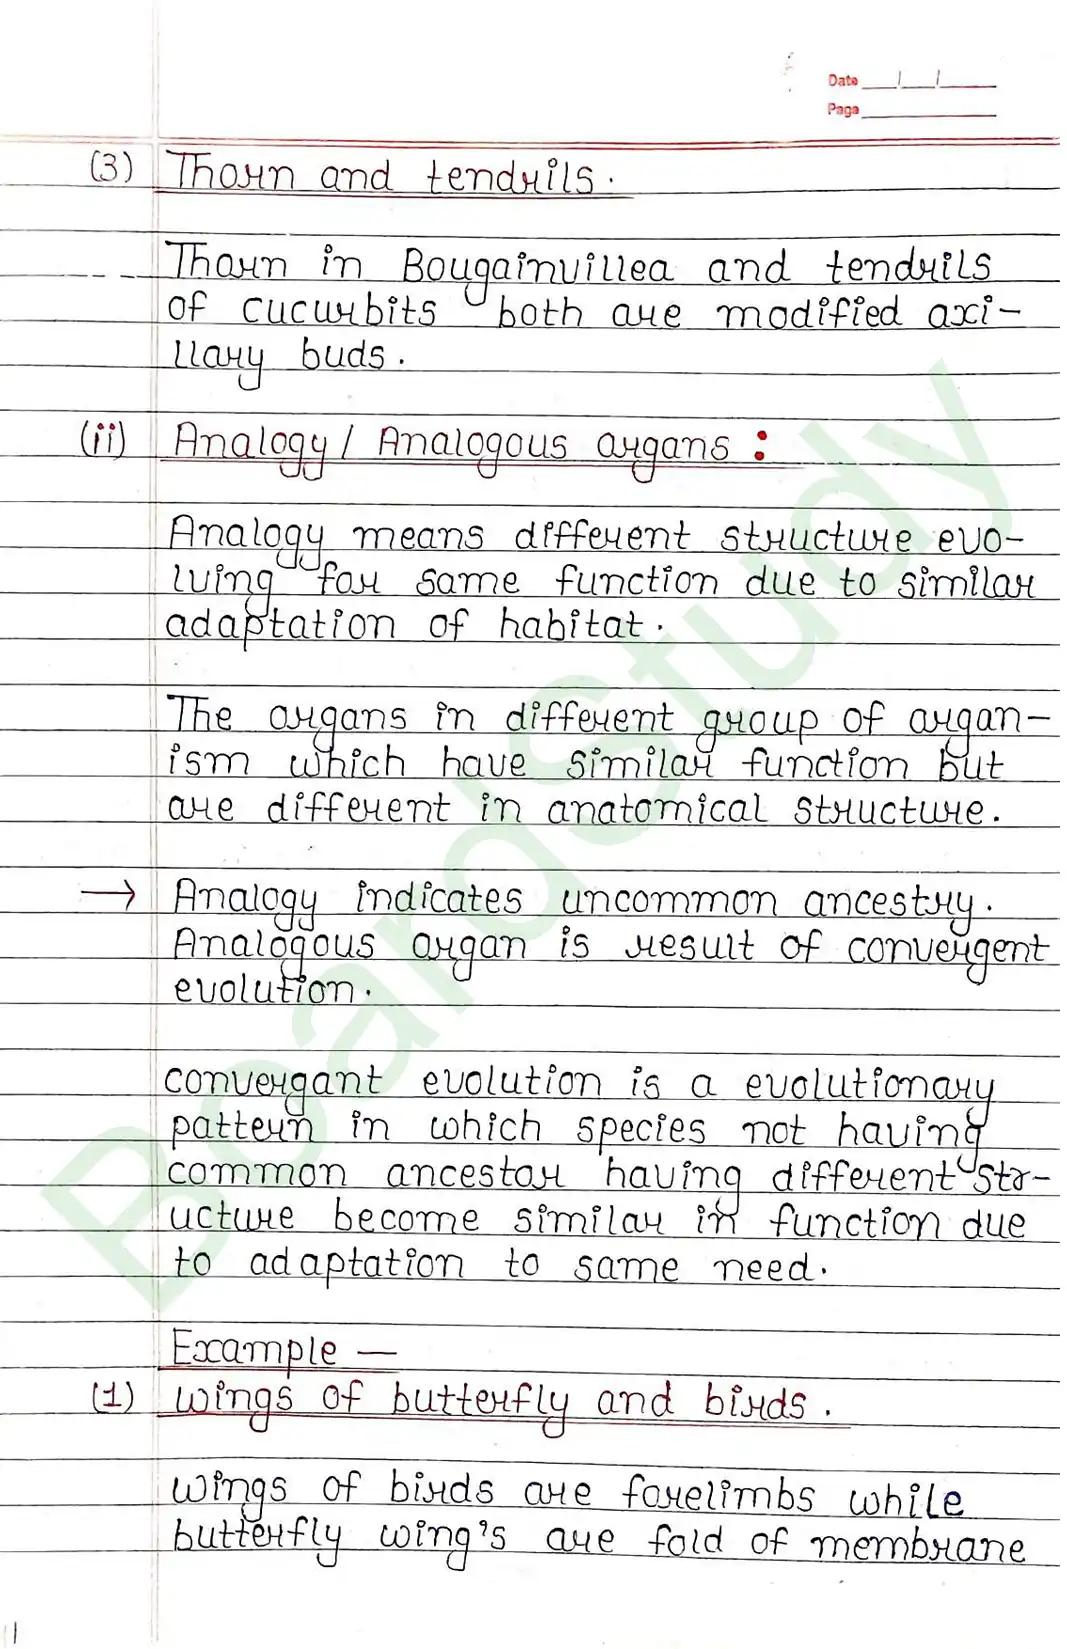 Date __/__/____
Page ________
(3) Thorn and tendrils.
Thorn in Bougainvillea and tendrils
of cucurbits both are modified axi-
llary buds.
(ii) Analogy / Analogous organs :
Analogy means different structure evo-
lving for same function due to similar
adaptation of habitat.
The organs in different group of organ-
ism which have similar function but
are different in anatomical structure.
→ Analogy indicates uncommon ancestry.
Analogous organ is result of convergent
evolution.
convergant evolution is a evolutionary
pattern in which species not having
common ancestor having different str-
ucture become similar in function due
to adaptation to same need.
Example —
(1) wings of butterfly and birds.
wings of birds are forelimbs while
butterfly wing's are fold of membrane
BoardStudy